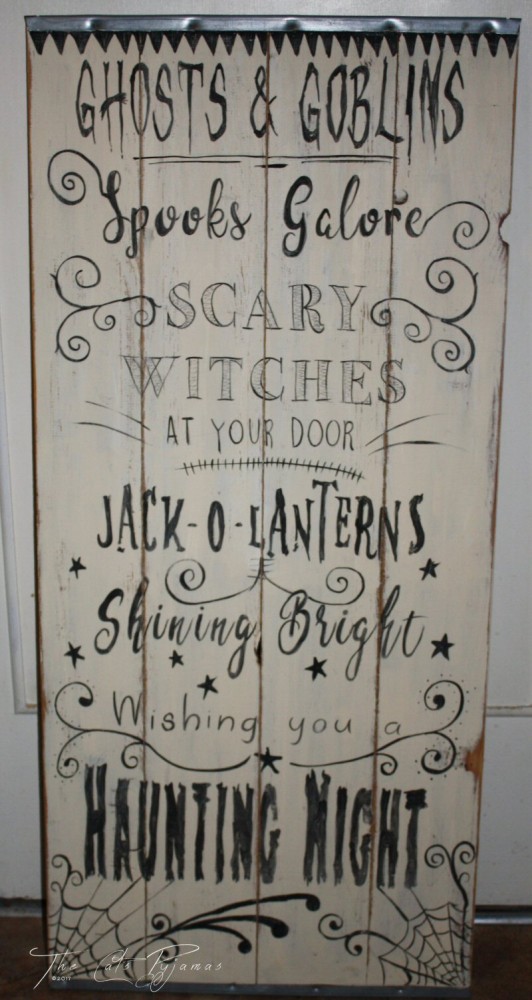 GHOSTS & GOBLINS
Spooks Galore
SCARY
WITCHES
AT YOUR DOOR
JACK-O-LANTERNS
Shining Bright
Wishing you a
HAUNTING NIGHT
The Cats Pyjamas
©2011